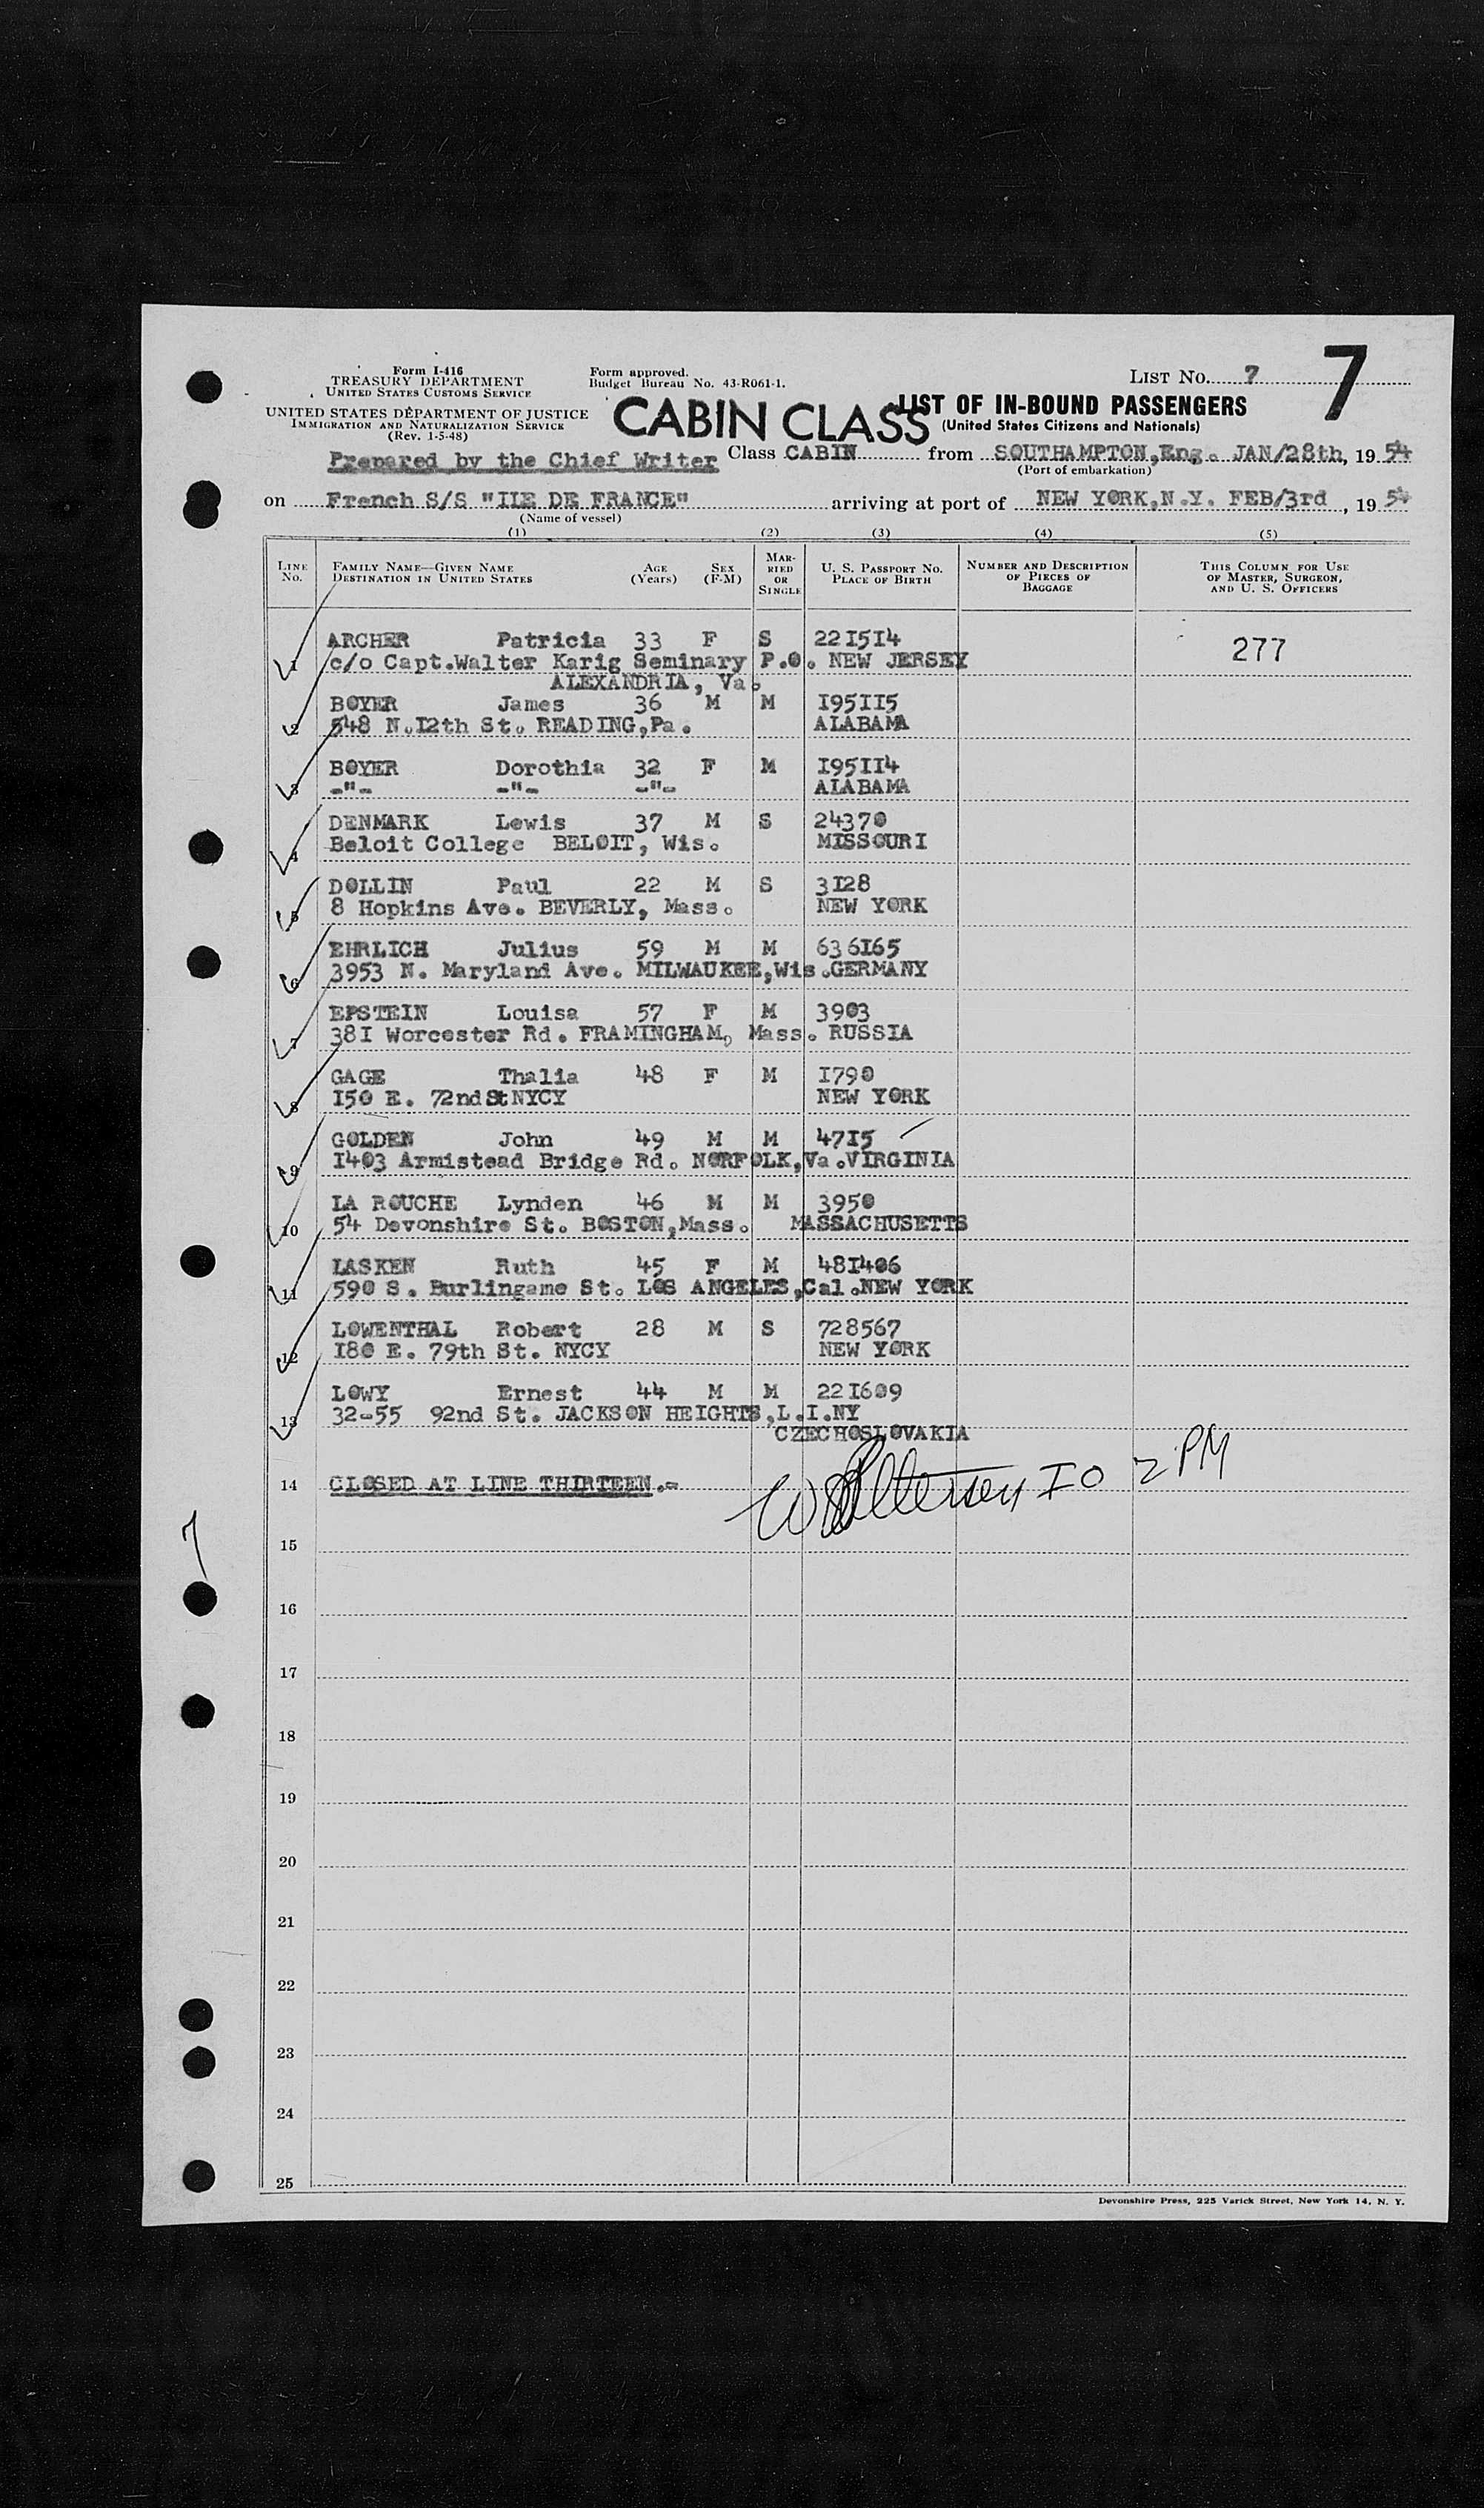 Form I-416
TREASURY DEPARTMENT
UNITED STATES CUSTOMS SERVICE
UNITED STATES DEPARTMENT OF JUSTICE
IMMIGRATION AND NATURALIZATION SERVICE
(Rev. 1-5-48)
Form approved.
Budget Bureau No. 43-R061-1.
LIST No. 7
7
CABIN CLASS
LIST OF IN-BOUND PASSENGERS
(United States Citizens and Nationals)
Prepared by the Chief Writer Class CABIN from SOUTHAMPTON,Eng. JAN/28th, 1954
(Port of embarkation)
on French S/S "ILE DE FRANCE" arriving at port of NEW YORK,N.Y. FEB/3rd, 1954
(Name of vessel)
(1) (2) (3) (4) (5)
LINE No. FAMILY NAME—GIVEN NAME DESTINATION IN UNITED STATES AGE (Years) SEX (F-M) MARRIED OR SINGLE U. S. PASSPORT NO. PLACE OF BIRTH NUMBER AND DESCRIPTION OF PIECES OF BAGGAGE THIS COLUMN FOR USE OF MASTER, SURGEON, AND U. S. OFFICERS
1 ARCHER Patricia 33 F S 221514 277
c/o Capt.Walter Karig Seminary P.O. NEW JERSEY
ALEXANDRIA, Va.
2 BOYER James 36 M M 195115
548 N.12th St. READING,Pa. ALABAMA
3 BOYER Dorothia 32 F M 195114
-"- -"- -"- ALABAMA
4 DENMARK Lewis 37 M S 24370
Beloit College BELOIT, Wis. MISSOURI
5 DOLLIN Paul 22 M S 3128
8 Hopkins Ave. BEVERLY, Mass. NEW YORK
6 EHRLICH Julius 59 M M 636165
3953 N. Maryland Ave. MILWAUKEE,Wis.GERMANY
7 EPSTEIN Louisa 57 F M 3903
381 Worcester Rd. FRAMINGHAM, Mass. RUSSIA
8 GAGE Thalia 48 F M 1790
150 E. 72nd St NYCY NEW YORK
9 GOLDEN John 49 M M 4715
1403 Armistead Bridge Rd. NORFOLK,Va.VIRGINIA
10 LA ROUCHE Lynden 46 M M 3950
54 Devonshire St. BOSTON,Mass. MASSACHUSETTS
11 LASKEN Ruth 45 F M 481406
590 S. Burlingame St. LOS ANGELES,Cal.NEW YORK
12 LOWENTHAL Robert 28 M S 728567
180 E. 79th St. NYCY NEW YORK
13 LOWY Ernest 44 M M 221609
32-55 92nd St. JACKSON HEIGHTS,L.I.NY
CZECHOSLOVAKIA
14 CLOSED AT LINE THIRTEEN.-
IO 2 PM
15
7
16
17
18
19
20
21
22
23
24
25
Devonshire Press, 225 Varick Street, New York 14, N. Y.